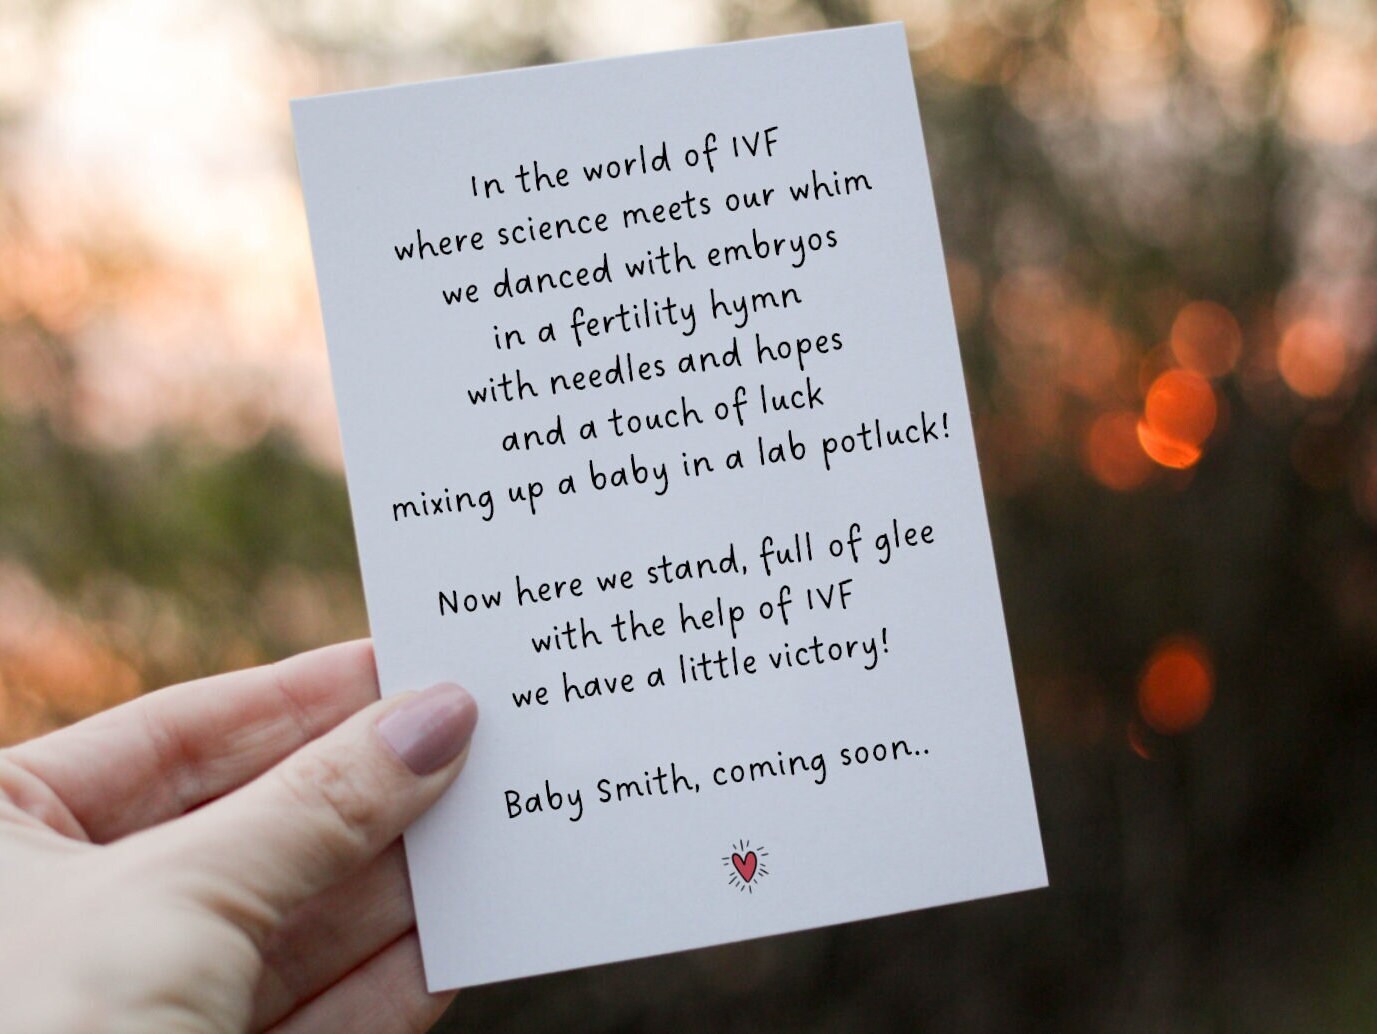 In the world of IVF
where science meets our whim
we danced with embryos
in a fertility hymn
with needles and hopes
and a touch of luck
mixing up a baby in a lab potluck!
Now here we stand, full of glee
with the help of IVF
we have a little victory!
Baby Smith, coming soon..